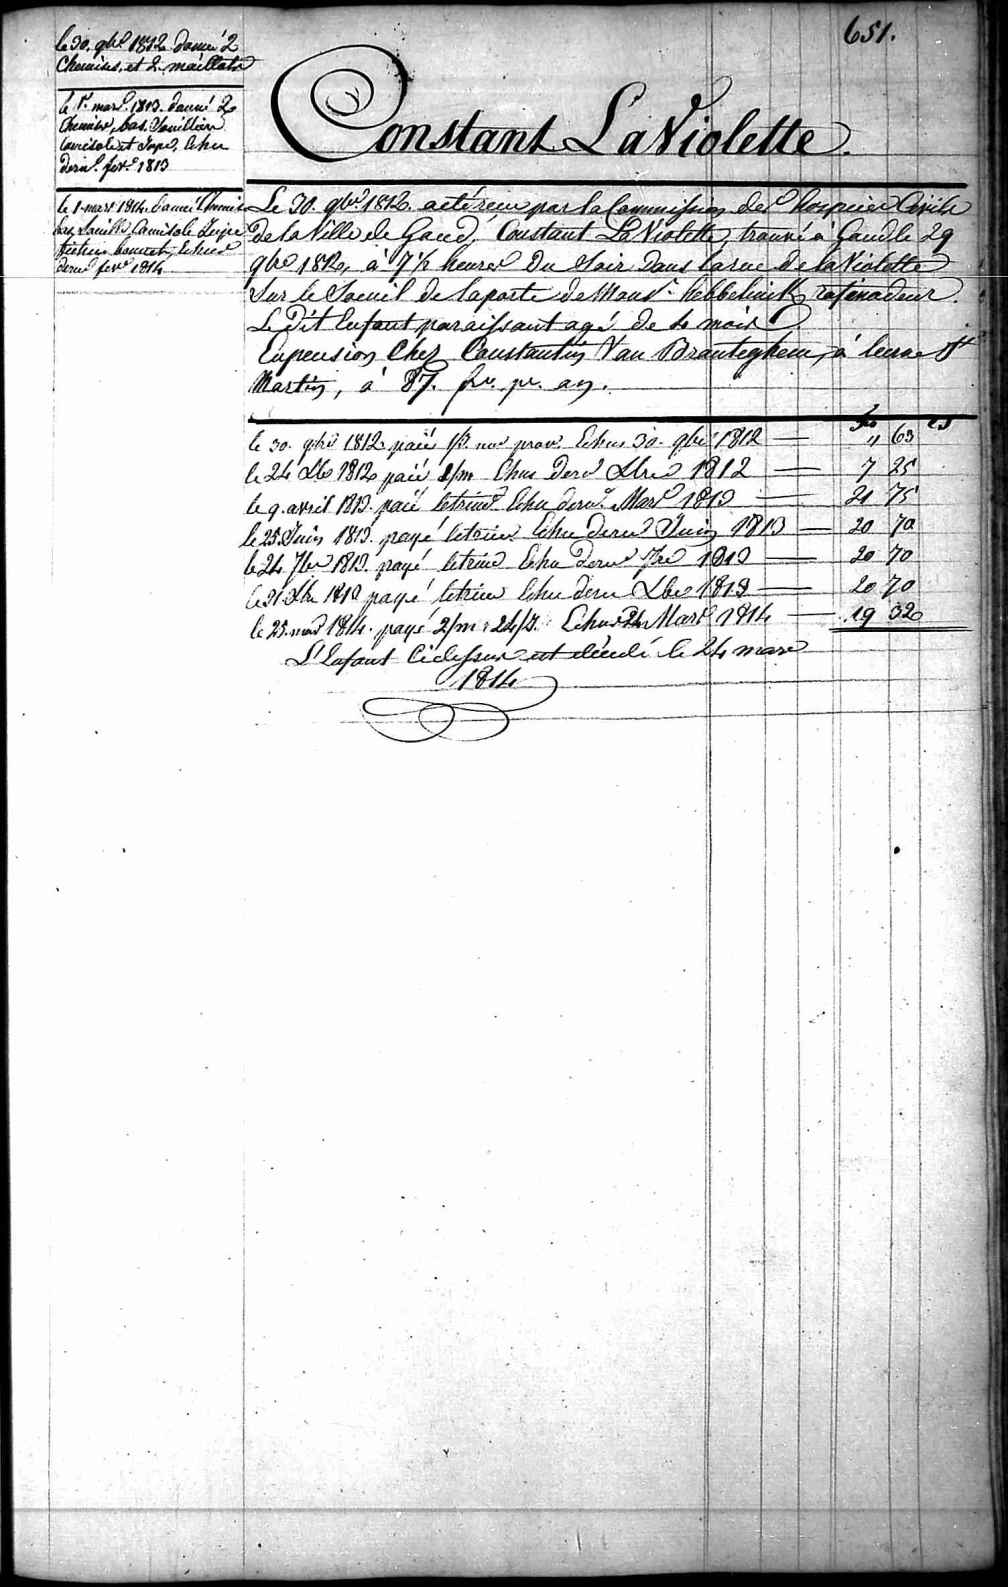 651.
le 30. 9bre 1812 donné 2
Chemises, et 2 maillots
le 1r. mars 1813. donné 2
Chemises, bas, Souilliers
Camisole et Jupe, Echu
dern.r fevr. 1813
le 1 mars 1814. donné Chemise
bas, Souilliers Camisole Jupe
bonnet, Echu
dern.r fevr 1814
Constant LaViolette.
Le 30. 9bre 1812. a eté reçu par la Commission des hospices Civils
De la Ville de Gand, Constant LaViolette, trouvé à Gand le 29
9bre 1812, à 7½ heures Du Soir Dans la rue de la Violette
Sur le Soeuil de la porte de Monsr. hebbelinck, rafinadeur.
Le Dit Enfant paraissant agé de 4 mois
En pension Chez Constantin Van Branteghem, à leerne St
Martin, à 87. fr. pr. an.
fr cs
le 30. 9bre 1812 paié prov. Echus 30. 9bre 1812 — " 63
le 24 Xbre 1812 paié 1/m Echus Dernr Xbre 1812 — 7 25
le 9. avril 1813. paié le trimr Echu dernr. Mars 1813 — 21 75
le 25 Juin 1813. payé le trimr Echu Dernr Juin 1813 — 20 70
le 24 7bre 1813. payé le trimr Echu Dernr 7bre 1813 — 20 70
le 31 Xbre 1813 payé le trimr Echu dernr Xbre 1813 — 20 70
le 25. mars 1814. payé 2/m : 24/J. Echus 24 Mars 1814 — 19 32
L'Enfant Cidessus est décédé le 24 mars
1814